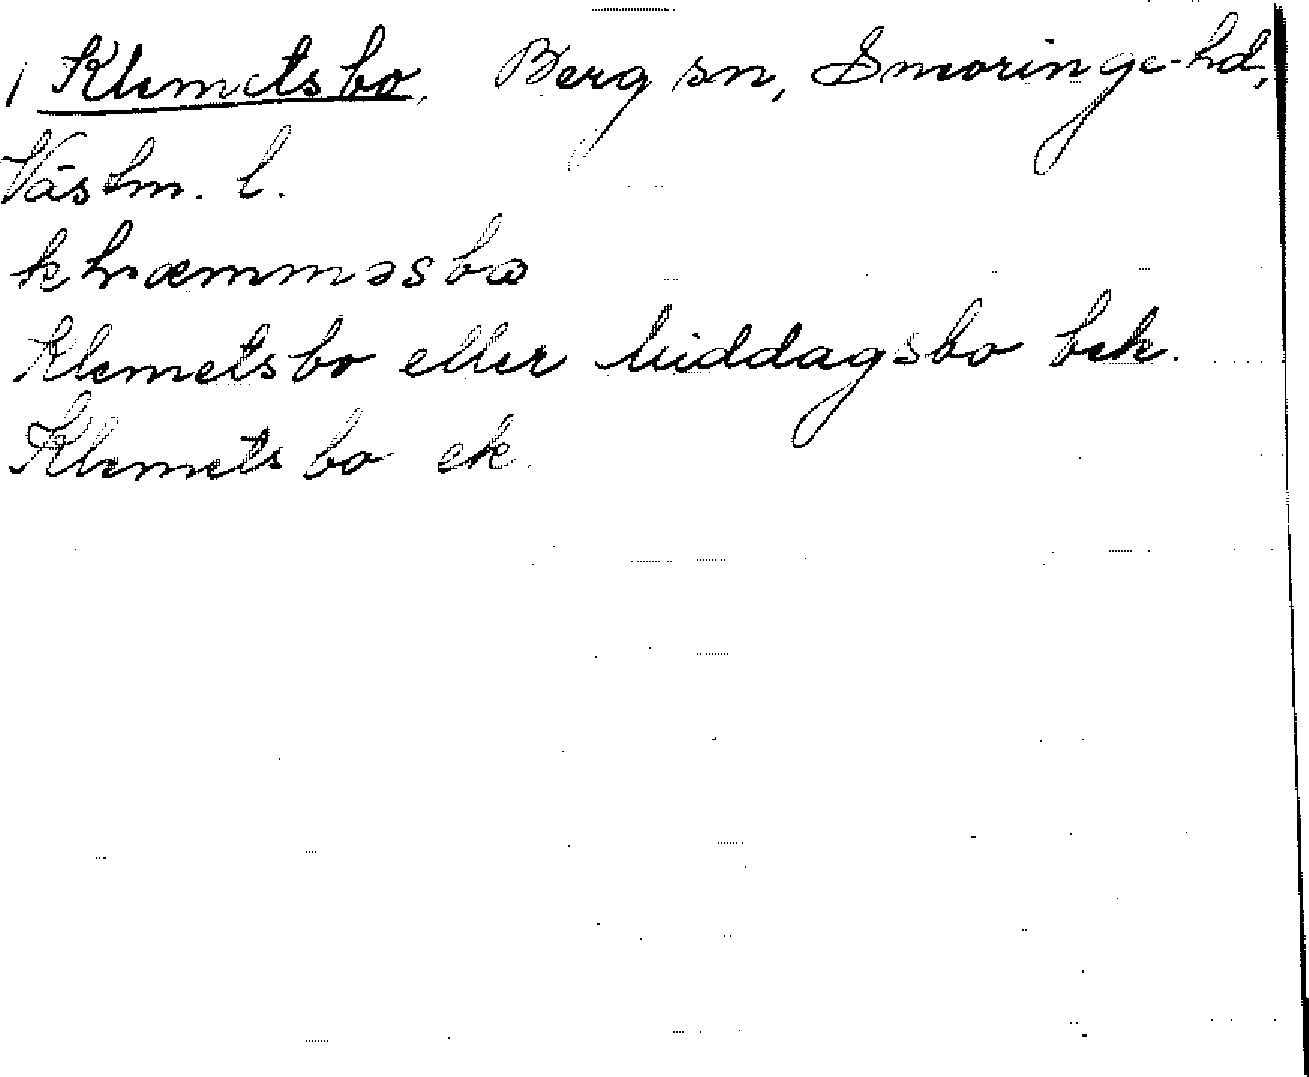 1 Klemetsbo, Berg sn, Snevringe hd,
Västm. l.
Klemetsbo eller Middagsbo bek.
Klemetsbo ek.